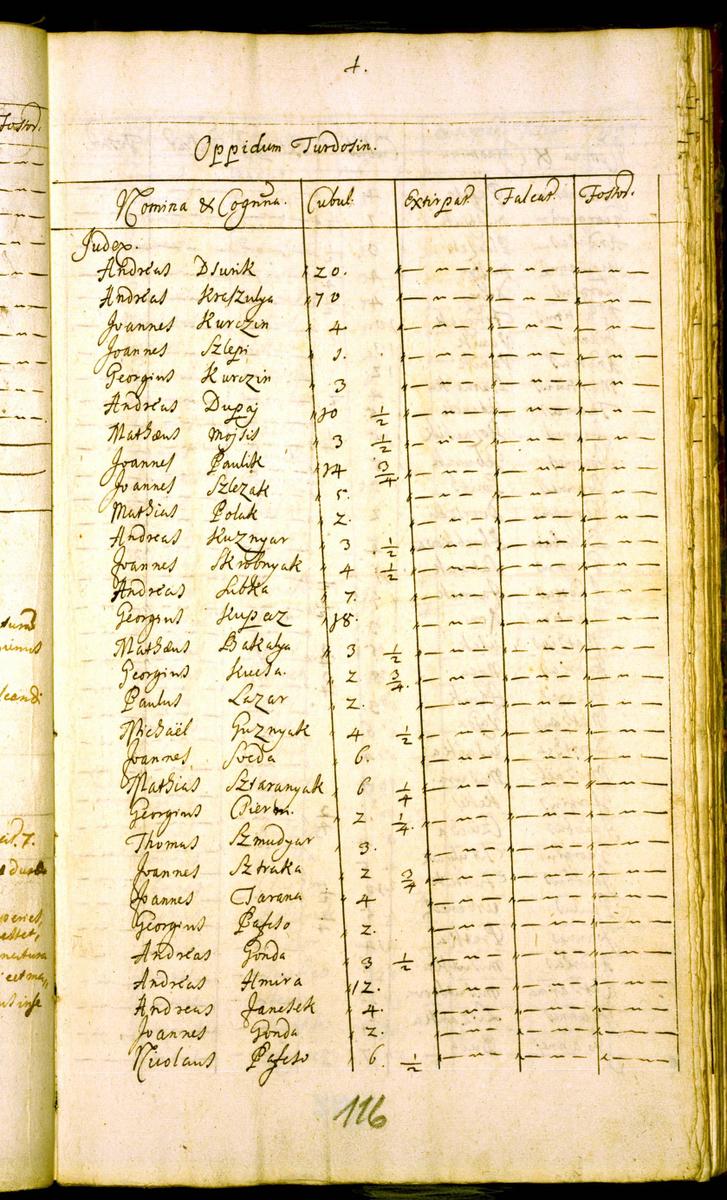 4.
Oppidum Turdosin.
Nomina & Cognna. Cubul. Extirpat. Falcat. Fossor.
Judex.
Andreas Dsurik 20.
Andreas Kreszulya 70
Joannes Kurczin 4
Joannes Szlepi 1.
Georgius Kurczin 3
Andreas Dupaj 10 1/2
Mathæus Mojsis 3 1/2
Joannes Paulik 14 3/4
Joannes Szlezak 5.
Mathias Polak 2.
Andreas Kuznyar 3 1/2
Joannes Skrobnyak 4 1/2
Andreas Lubka 7.
Georgius Kupcz 18.
Mathæus Bakalya 3 1/2
Georgius Kucsa. 2 3/4.
Paulus Lazar 2.
Michaël Guznyak 4 1/2
Joannes Sveda 6.
Mathias Sztaranyak 6 1/4
Georgius 2. 1/4.
Thomas Szmadyar 3.
Joannes Sztraka 2 3/4
Joannes Tarana 4
Georgius Pafcso 2.
Andreas Gonda 3 1/2
Andreas Hmira 12.
Andreas Janesek 4.
Joannes Gonda 2.
Nicolaus Pafcso 6 1/2
116